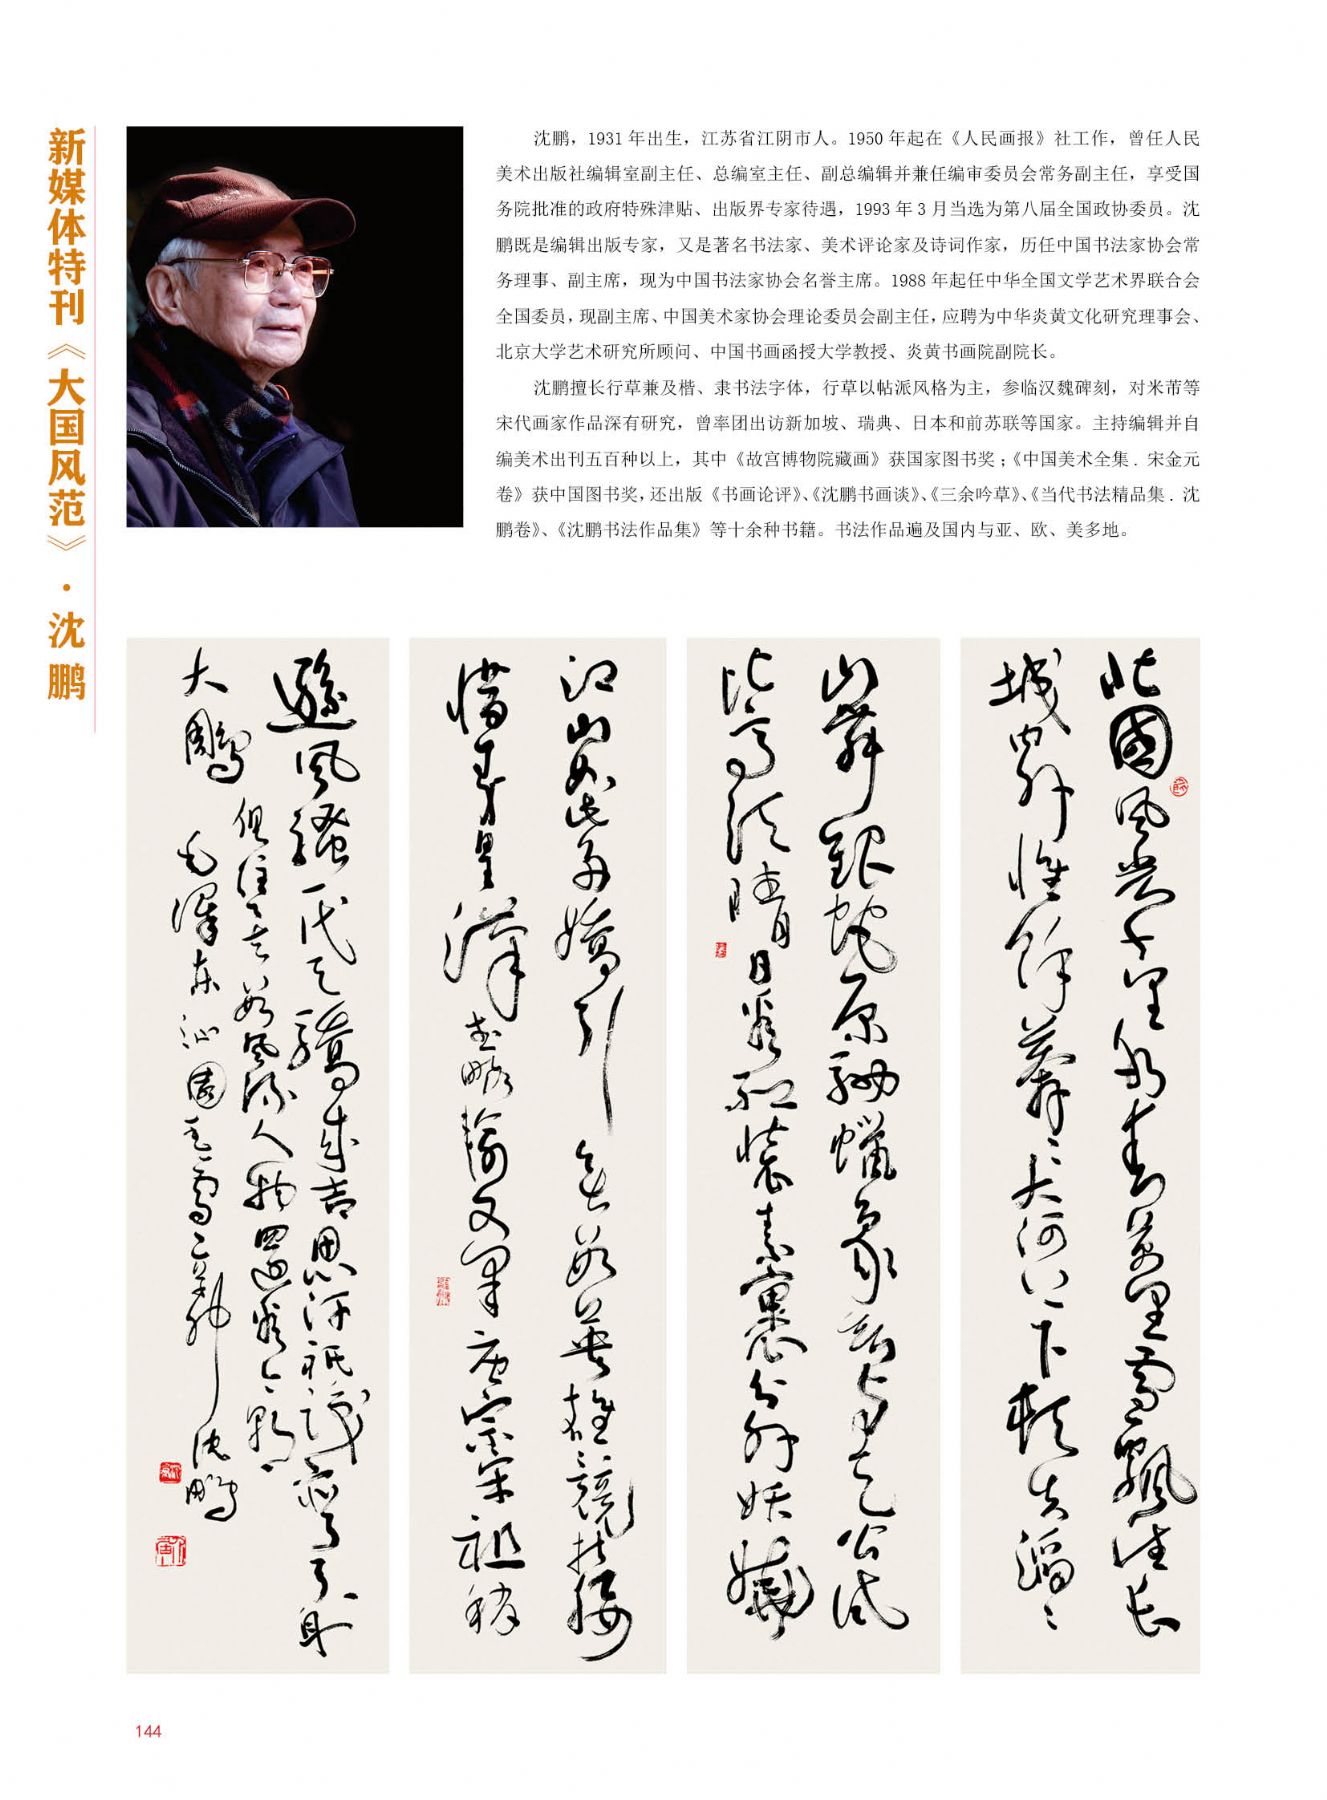 新媒体特刊《大国风范》·沈鹏
沈鹏，1931 年出生，江苏省江阴市人。1950 年起在《人民画报》社工作，曾任人民
美术出版社编辑室副主任、总编室主任、副总编辑并兼任编审委员会常务副主任，享受国
务院批准的政府特殊津贴、出版界专家待遇，1993 年 3 月当选为第八届全国政协委员。沈
鹏既是编辑出版专家，又是著名书法家、美术评论家及诗词作家，历任中国书法家协会常
务理事、副主席，现为中国书法家协会名誉主席。1988 年起任中华全国文学艺术界联合会
全国委员，现副主席、中国美术家协会理论委员会副主任，应聘为中华炎黄文化研究理事会、
北京大学艺术研究所顾问、中国书画函授大学教授、炎黄书画院副院长。
沈鹏擅长行草兼及楷、隶书法字体，行草以帖派风格为主，参临汉魏碑刻，对米芾等
宋代画家作品深有研究，曾率团出访新加坡、瑞典、日本和前苏联等国家。主持编辑并自
编美术出刊五百种以上，其中《故宫博物院藏画》获国家图书奖；《中国美术全集．宋金元
卷》获中国图书奖，还出版《书画论评》、《沈鹏书画谈》、《三余吟草》、《当代书法精品集．沈
鹏卷》、《沈鹏书法作品集》等十余种书籍。书法作品遍及国内与亚、欧、美多地。
北國風光千里冰封萬里雪飄望長
城內外惟餘莽〻大河上下頓失滔〻
山舞銀蛇原馳蠟象欲與天公試
比高須晴日看紅裝素裹分外妖嬈
江山如此多嬌引無數英雄競折腰
惜秦皇漢武略輸文采唐宗宋祖稍
遜風騷一代天驕成吉思汗祇識彎弓射
大鵰俱往矣數風流人物還看今朝
毛澤東沁園春雪 沈鵬
144